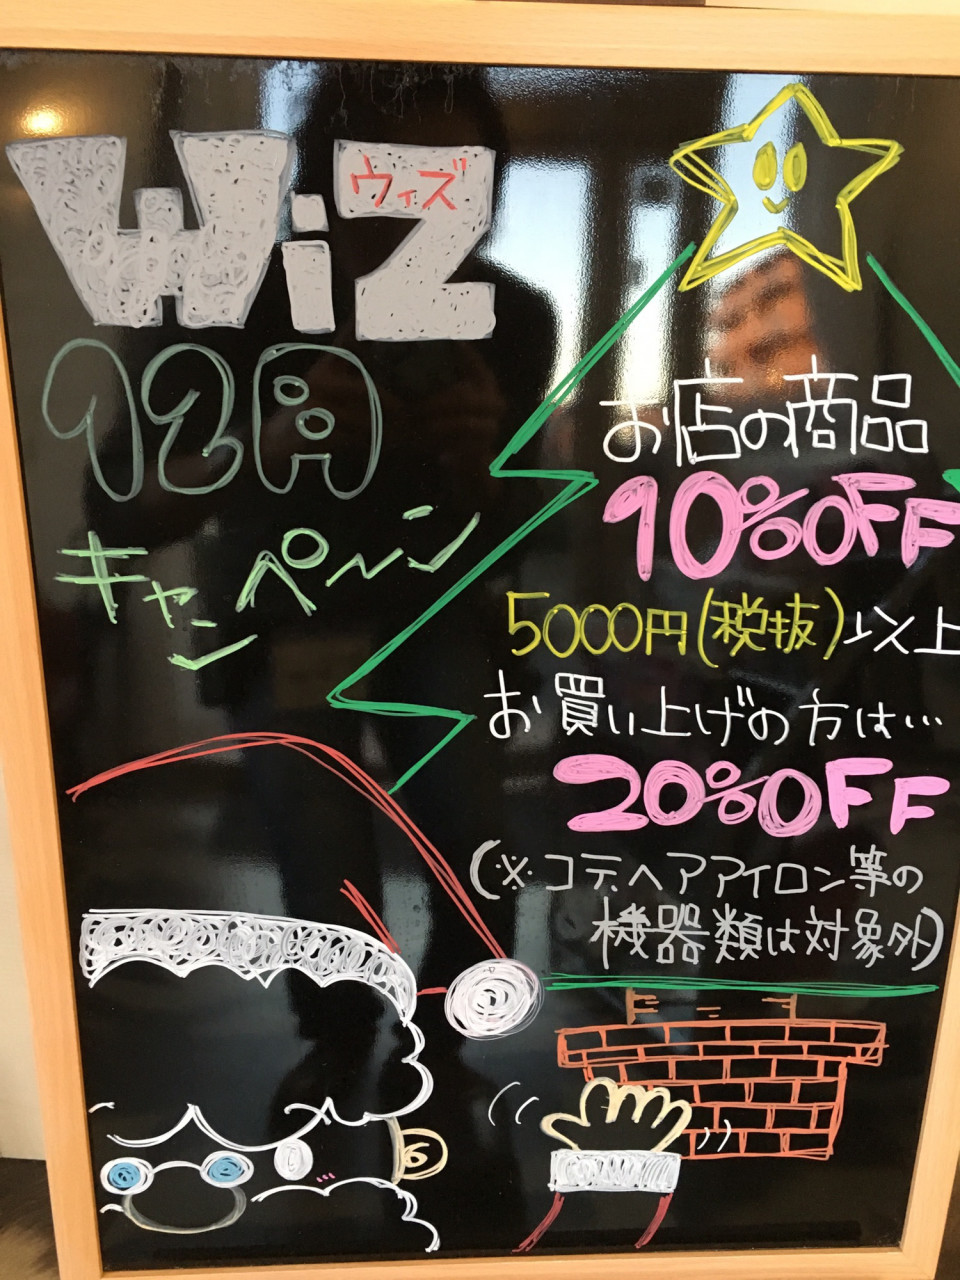 WiZ
ウィズ
12月
キャンペーン
お店の商品
10%OFF
5000円(税抜)以上
お買い上げの方は…
20%OFF
(※コテ、ヘアアイロン等の
機器類は対象外)